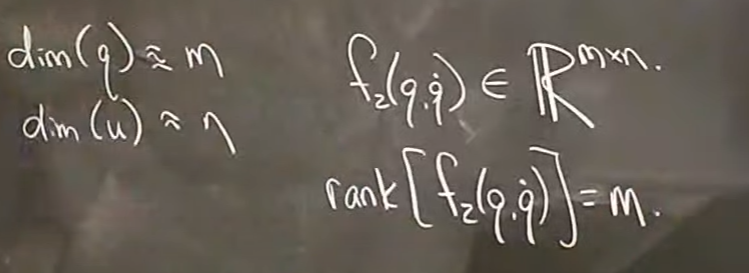 dim(q) ≈ m
dim(u) ≈ n
f₂(q,q̇) ∈ ℝ^{m×n}.
rank[f₂(q,q̇)] = m.